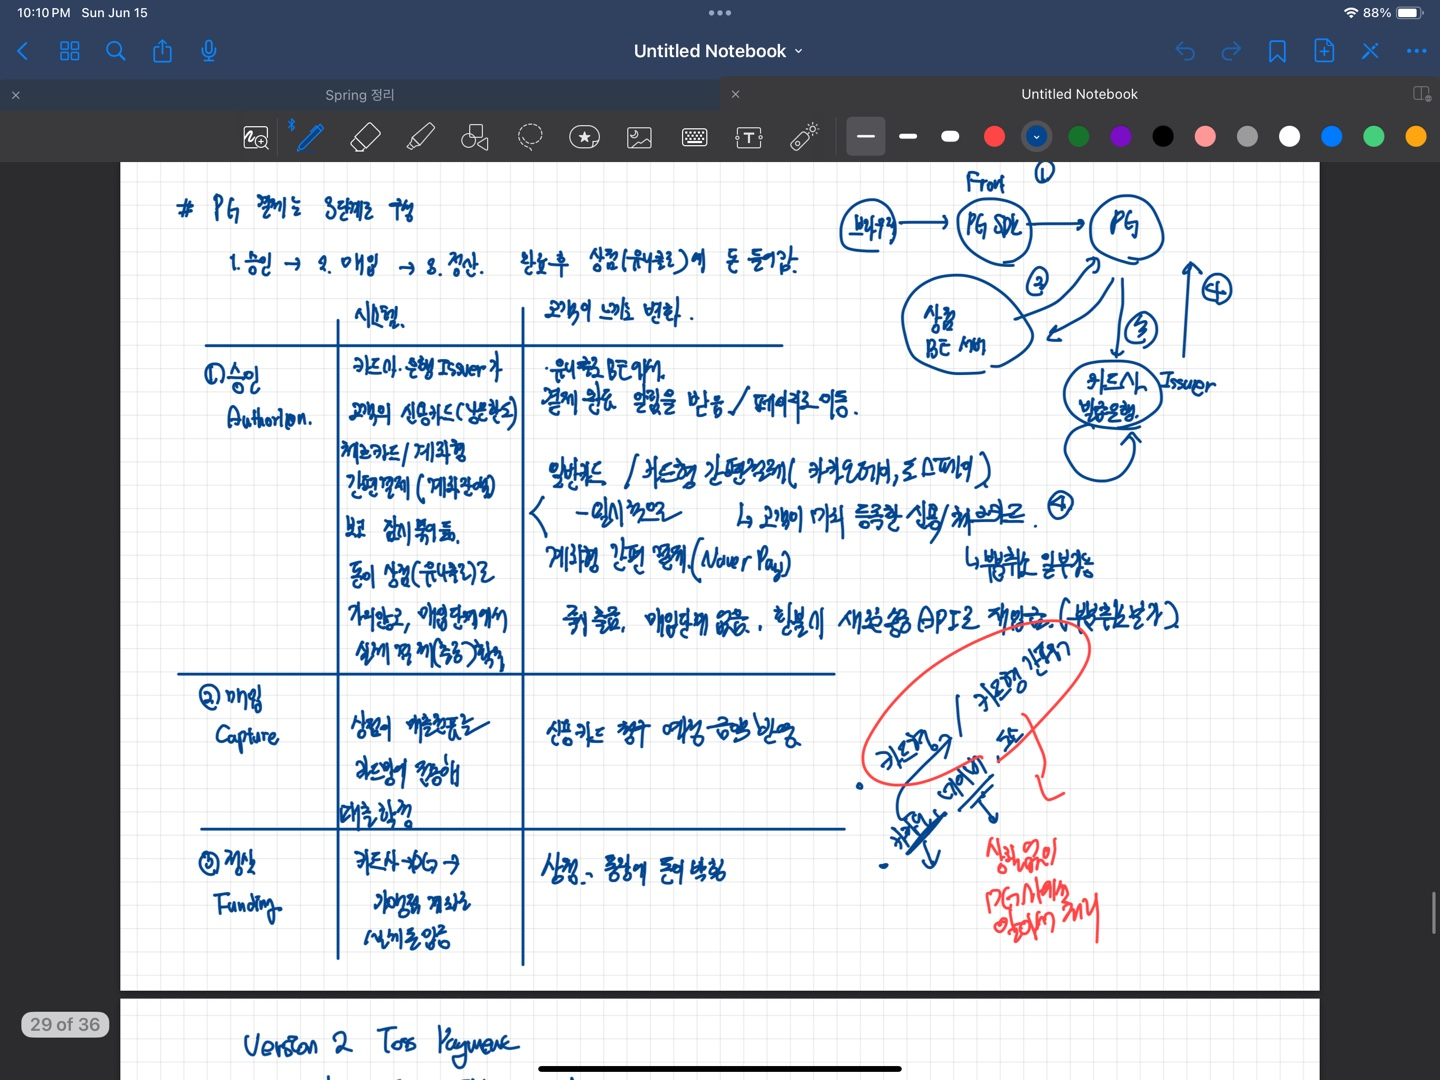 10:10 PM Sun Jun 15
88%
Untitled Notebook
Spring 정리
Untitled Notebook
# PG 결제는 3단계로 구성
1. 승인 → 2. 매입 → 3. 정산. 완료후 상점(유니클로)에 돈 들어감.
시스템. 고객이 느끼는 변화.
① 승인
카드사·은행 Issuer가
고객의 신용카드(남은한도)
체크카드/계좌형
간편결제(계좌잔액)
보고 잠시 묶어둠.
돈이 상점(유니클로)로
가지않고, 매입단계에서
실제 결제(출금)확정
· 유니클로 BE에서.
결제 완료 알림을 받음/페이지로 이동.
일반카드 / 카드형 간편결제(카카오페이, 토스페이)
↳ 고객이 미리 등록한 신용/체크카드. ④
계좌형 간편 결제.(Naver Pay)
↳ 부분취소 일부가능
즉시 출금, 매입단계 없음, 환불시 새로운 송금 API로 재입금.(부분취소 불가)
② 매입
Capture
상점이 매출전표를
카드망에 전송해
매출확정
신용카드 청구 예정 금액 반영
③ 정산
Funding
카드사→PG→
가맹점 계좌로
실제 돈 입금
상점 통장에 돈이 박힘
Front ①
브라우저
PG SDK
PG
②
상점
BE 서버
③
④
카드사 Issuer
발급은행.
카드형 /
네이버
상관없이
PG사에서
알아서 처리
29 of 36
Version 2 Toss Payment